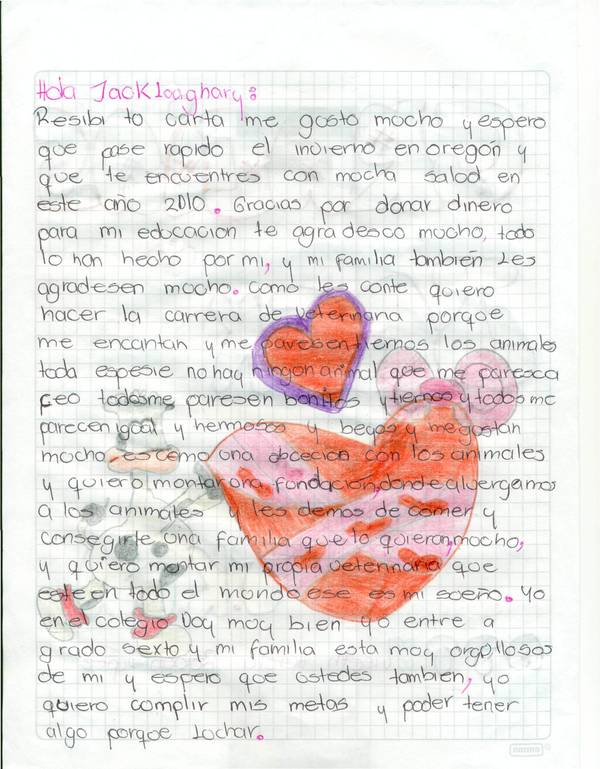 Hola Jack loaghary:
Resibi to carta me gosto mocho y espero
que pase rapido el invierno en oregón y
que te encuentres con mocha salod en
este año 2010. Gracias por donar dinero
para mi edocacion te agradesco mucho, todo
lo han hecho por mi, y mi familia también Les
agradesen mocho. como les conte quiero
hacer la carrera de veterinaria porque
me encantan y me paresen tiernos los animales
toda espesie no hay ningon animal que me paresca
feo todos me paresen bonitos y tiernos y todos me
parecen igoal y hermosos y beyos y me gostan
mocho es como una obcecion con los animales
y quiero montar una fundacion, donde alvergamos
a los animales y les demos de comer y
consegirle una familia que lo quieran mocho,
y quiero montar mi propia veterinaria que
este en todo el mundo ese es mi soeño. Yo
en el colegio Doy moy bien yo entre a
grado sexto y mi familia esta moy orgollosos
de mi y espero que ostedes tambien, yo
quiero complir mis metas y poder tener
algo porque lochar.
norma